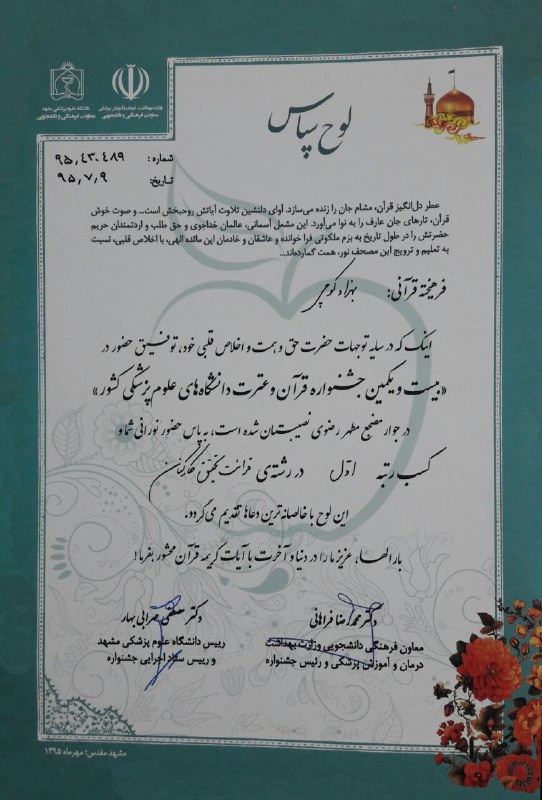 وزارت بهداشت، درمان و آموزش پزشکی
معاونت فرهنگی و دانشجویی
دانشگاه علوم پزشکی مشهد
معاونت فرهنگی و دانشجویی
لوح سپاس
شماره : ۹۵٫۴۳۰۴۸۹
تاریخ: ۹۵٫۷٫۹
عطر دل‌انگیز قرآن، مشام جان را زنده می‌سازد. آوای دلنشین تلاوت آیاتش روحبخش است... و صوت خوش
قرآن، تارهای جان عارف را به نوا می‌آورد. این مشعل آسمانی، عالمان خداجوی و حق طلب و ارادتمندان حریم
حضرتش را در طول تاریخ به بزم ملکوتی فرا خوانده و عاشقان و خادمان این مائده الهی، با اخلاص قلبی، نسبت
به تعلیم و ترویج این مصحف نور، همت گمارده‌اند...
فرهیخته قرآنی: بهزاد کوچی
اینک که در سایه توجهات حضرت حق و همت و اخلاص قلبی خود، توفیق حضور در
«بیست و یکمین جشنواره قرآن و عترت دانشگاه‌های علوم پزشکی کشور»
در جوار مضجع مطهر رضوی نصیبتان شده است، به پاس حضور نورانی شما و
کسب رتبه اول در رشته‌ی قرائت تحقیق کارکنان
این لوح با خالصانه‌ترین دعاها تقدیم می‌گردد.
بارالها، عزیز ما را در دنیا و آخرت با آیات کریمه قرآن محشور بفرما!
دکتر محمدرضا فراهانی
معاون فرهنگی دانشجویی وزارت بهداشت
درمان و آموزش پزشکی و رئیس جشنواره
دکتر مصطفی مهرابی بهار
رییس دانشگاه علوم پزشکی مشهد
و رییس ستاد اجرایی جشنواره
مشهد مقدس؛ مهرماه ۱۳۹۵